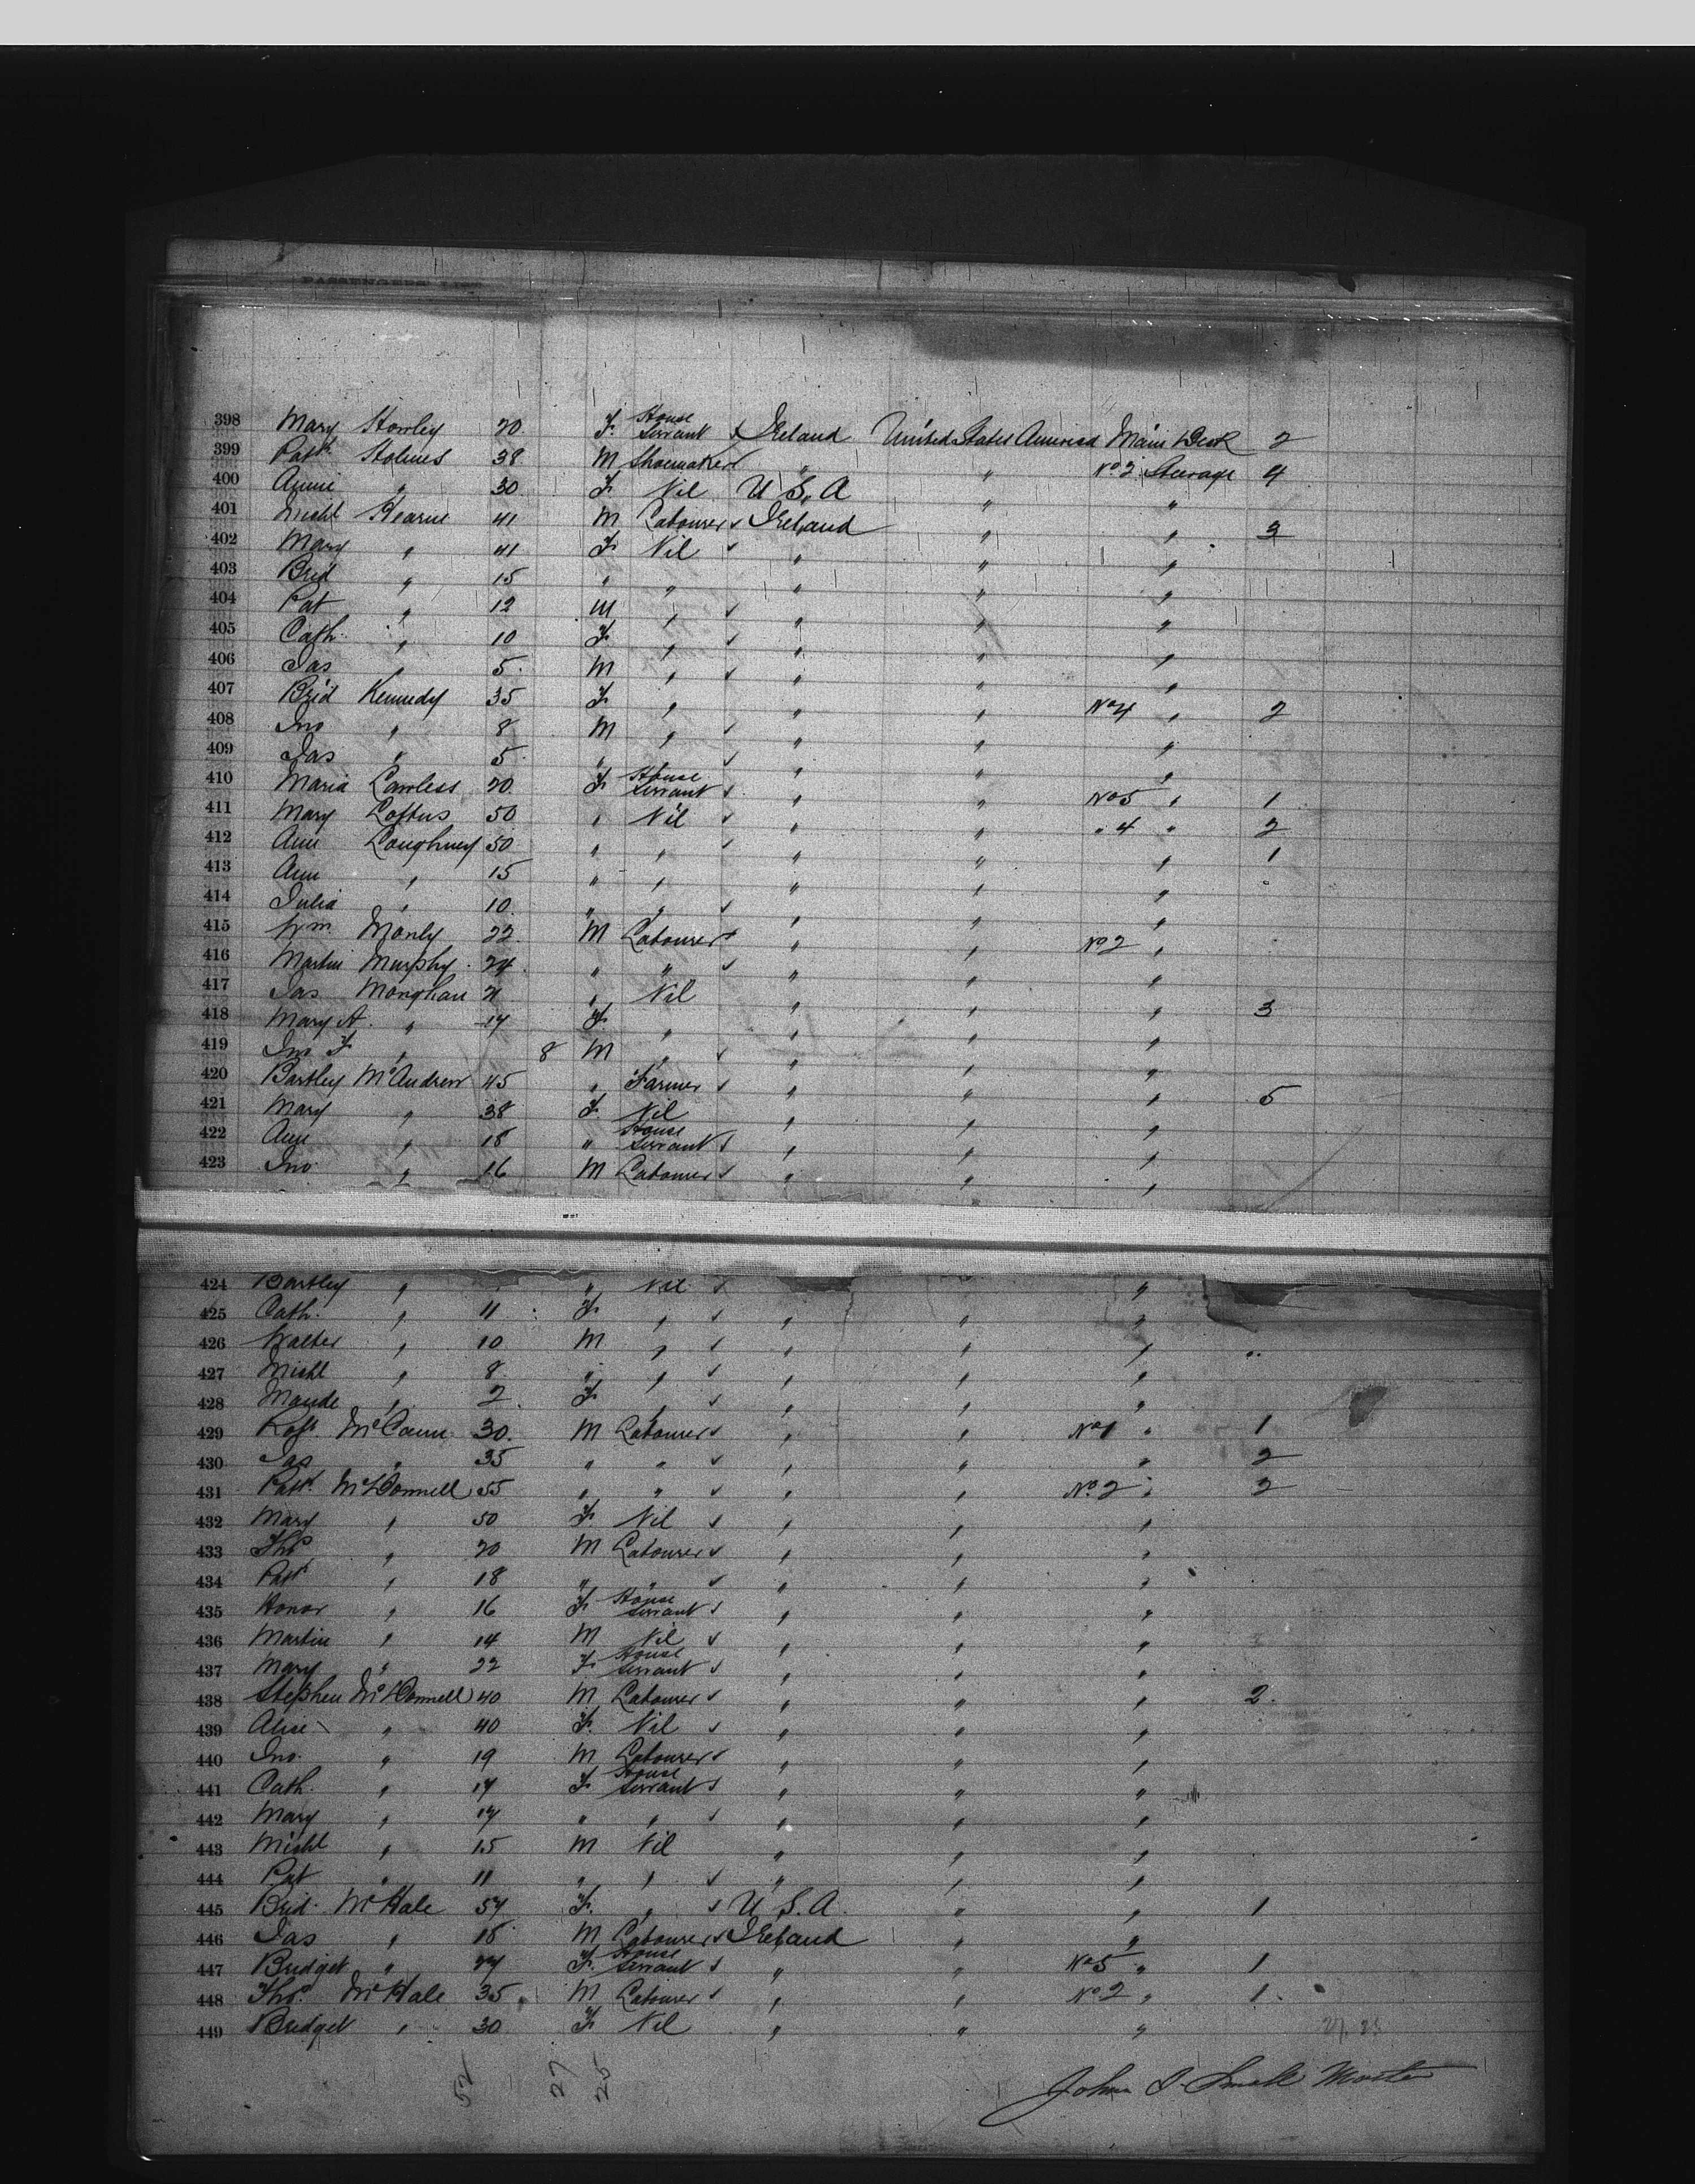 PASSENGERS' LIST
398 Mary Howley 20 F. House Servant Ireland United States America Main Deck 2
399 Patk Holmes 38 M Shoemaker " " No 2 Steerage 4
400 Annie " 30 F Nil U.S.A " "
401 Michl Kearns 41 M Labourer Ireland " " 3
402 Mary " 41 F Nil " " "
403 Brid " 15 " " " " "
404 Pat " 12 M " " " "
405 Cath. " 10 F " " " "
406 Jas " 5 M " " " "
407 Brid Kennedy 35 F " " " No 4 " 2
408 Jno " 8 M " " " "
409 Jas " 5 " " " " "
410 Maria Lawless 20 F House Servant " " No 5 " 1
411 Mary Loftus 50 " Nil " " " 4 " 2
412 Ann Loughney 50 " " " " " 1
413 Ann " 15 " " " " "
414 Julia " 10 " " " " "
415 Wm. Manly 22 M Labourer " " No 2 "
416 Martin Murphy 24 " " " " "
417 Jas Monghan 21 " Nil " " " 3
418 Mary A. " 17 F " " " "
419 Jno F " 8 M " " " "
420 Bartley McAndrew 45 " Farmer " " " 5
421 Mary " 38 F Nil " " "
422 Ann " 18 " House Servant " " "
423 Jno. " 16 M Labourer " " "
424 Bartley " " Nil "
425 Cath. " 11 F " " " "
426 Walter " 10 M " " " "
427 Michl " 8 " " " " "
428 Maude " 2 F " " " "
429 McCann 30 M Labourer " " No 1 " 1
430 Jas " 35 " " " " " 2
431 Patk. McDonnell 55 " " " " No. 2 " 2
432 Mary " 50 F Nil " " "
433 Thos " 20 M Labourer " " "
434 Patk " 18 " " " " "
435 Honor " 16 F House Servant " " "
436 Martin " 14 M Nil " " "
437 Mary " 22 F House Servant " " "
438 Stephen McDonnell 40 M Labourer " " " 2
439 Alice " 40 F. Nil " " "
440 Jno. " 19 M Labourer " " "
441 Cath. " 17 F House Servant " " "
442 Mary " 17 " " " " "
443 Michl " 15 M Nil " " "
444 Pat " 11 " " " " "
445 Brid. McHale 57 F. " U.S.A. " " 1
446 Jas " 18 M Labourer Ireland " "
447 Bridget " 27 F. House Servant " " No 5 " 1
448 Thos. McHale 35 M Labourer " " No 2 " 1
449 Bridget " 30 F Nil " " "
52 27 25
John Small Master